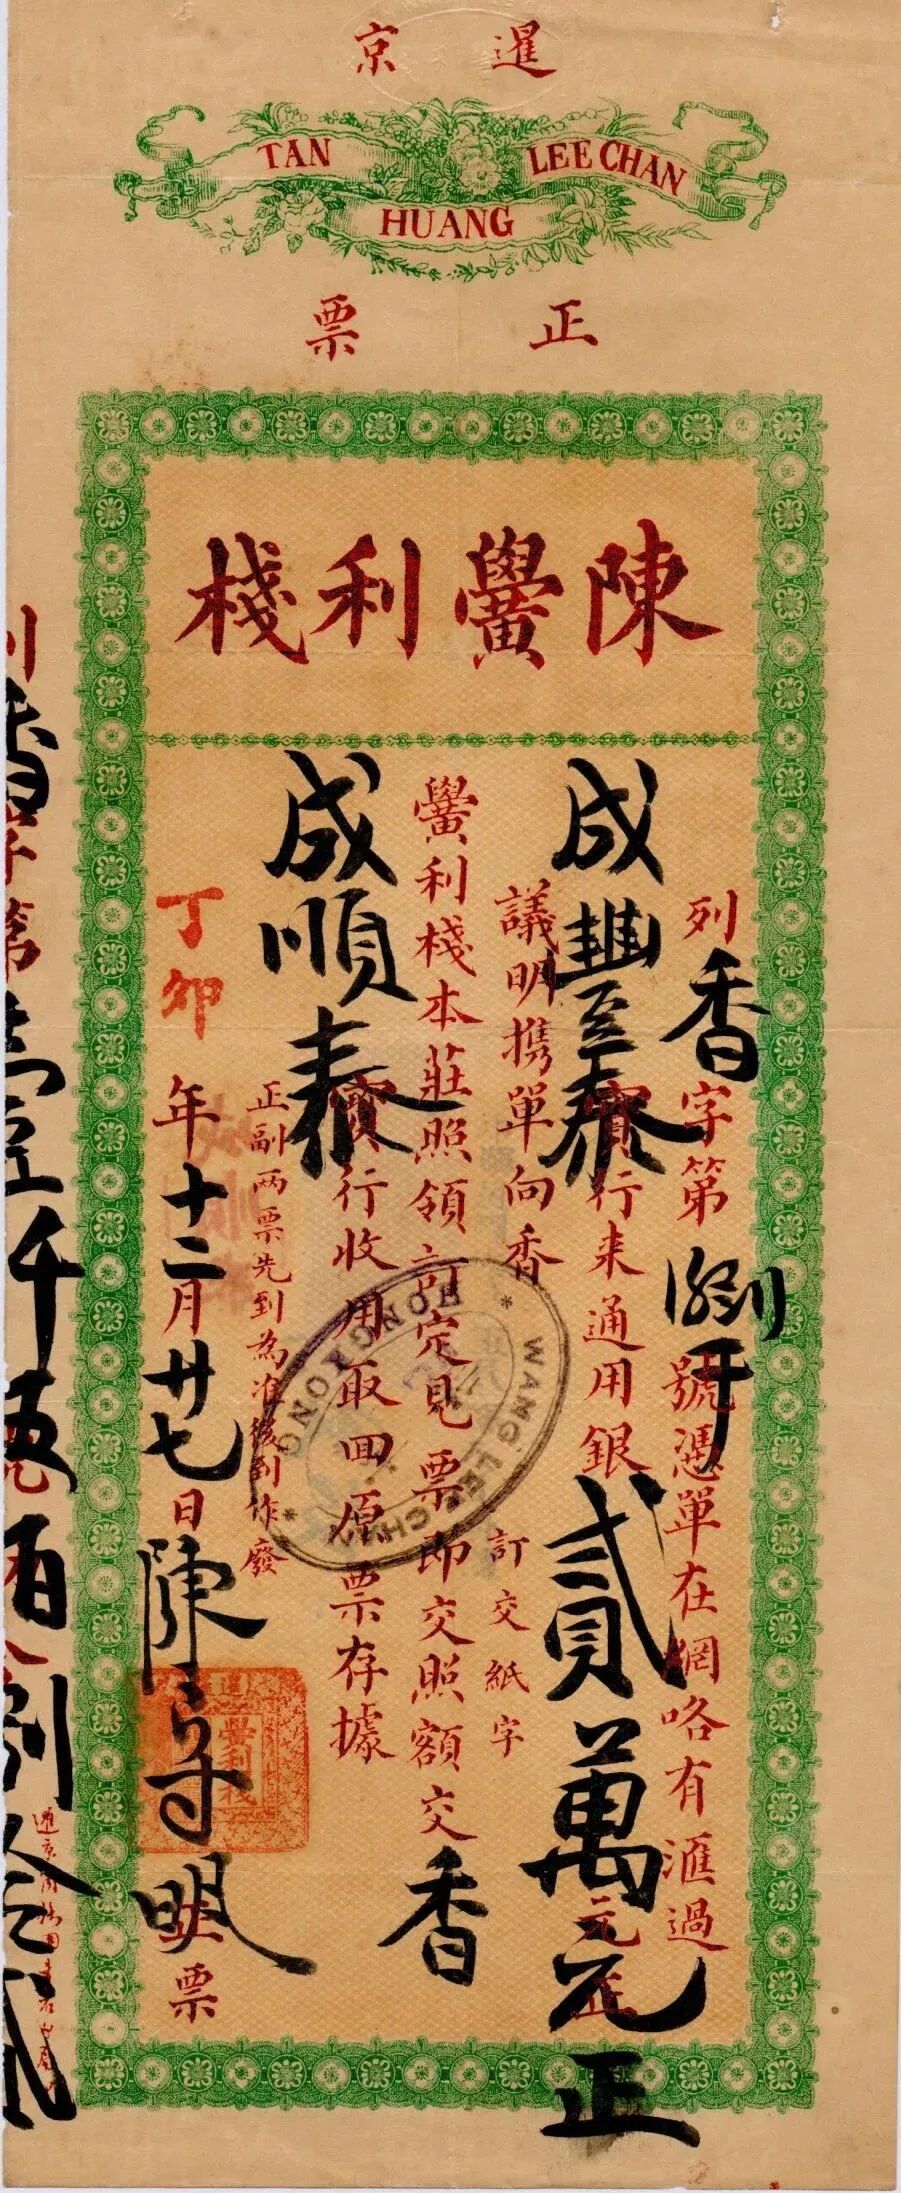 暹京
TAN LEE CHAN
HUANG
正票
陳黌利棧
列香字第 號憑單在網咯有滙過
成豐泰寶行来通用銀貳萬元正
訂交紙字
議明携單向香
黌利棧本莊照領訂定見票即交照額交香
成順泰寶行收用取回原票存據
正副两票先到為准後到作廢
丁卯年十二月廿七日陳守明票
WANG LEE CHAN
HONG KONG
黌利棧
字第 壹千伍佰捌拾貳